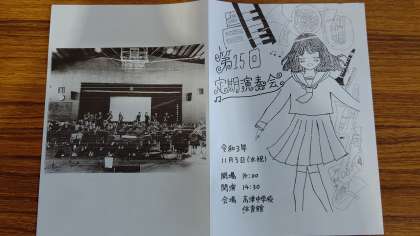 第15回
定期演奏会。
令和3年
11月3日(水祝)
開場 14:00
開演 14:30
会場 高津中学校
体育館